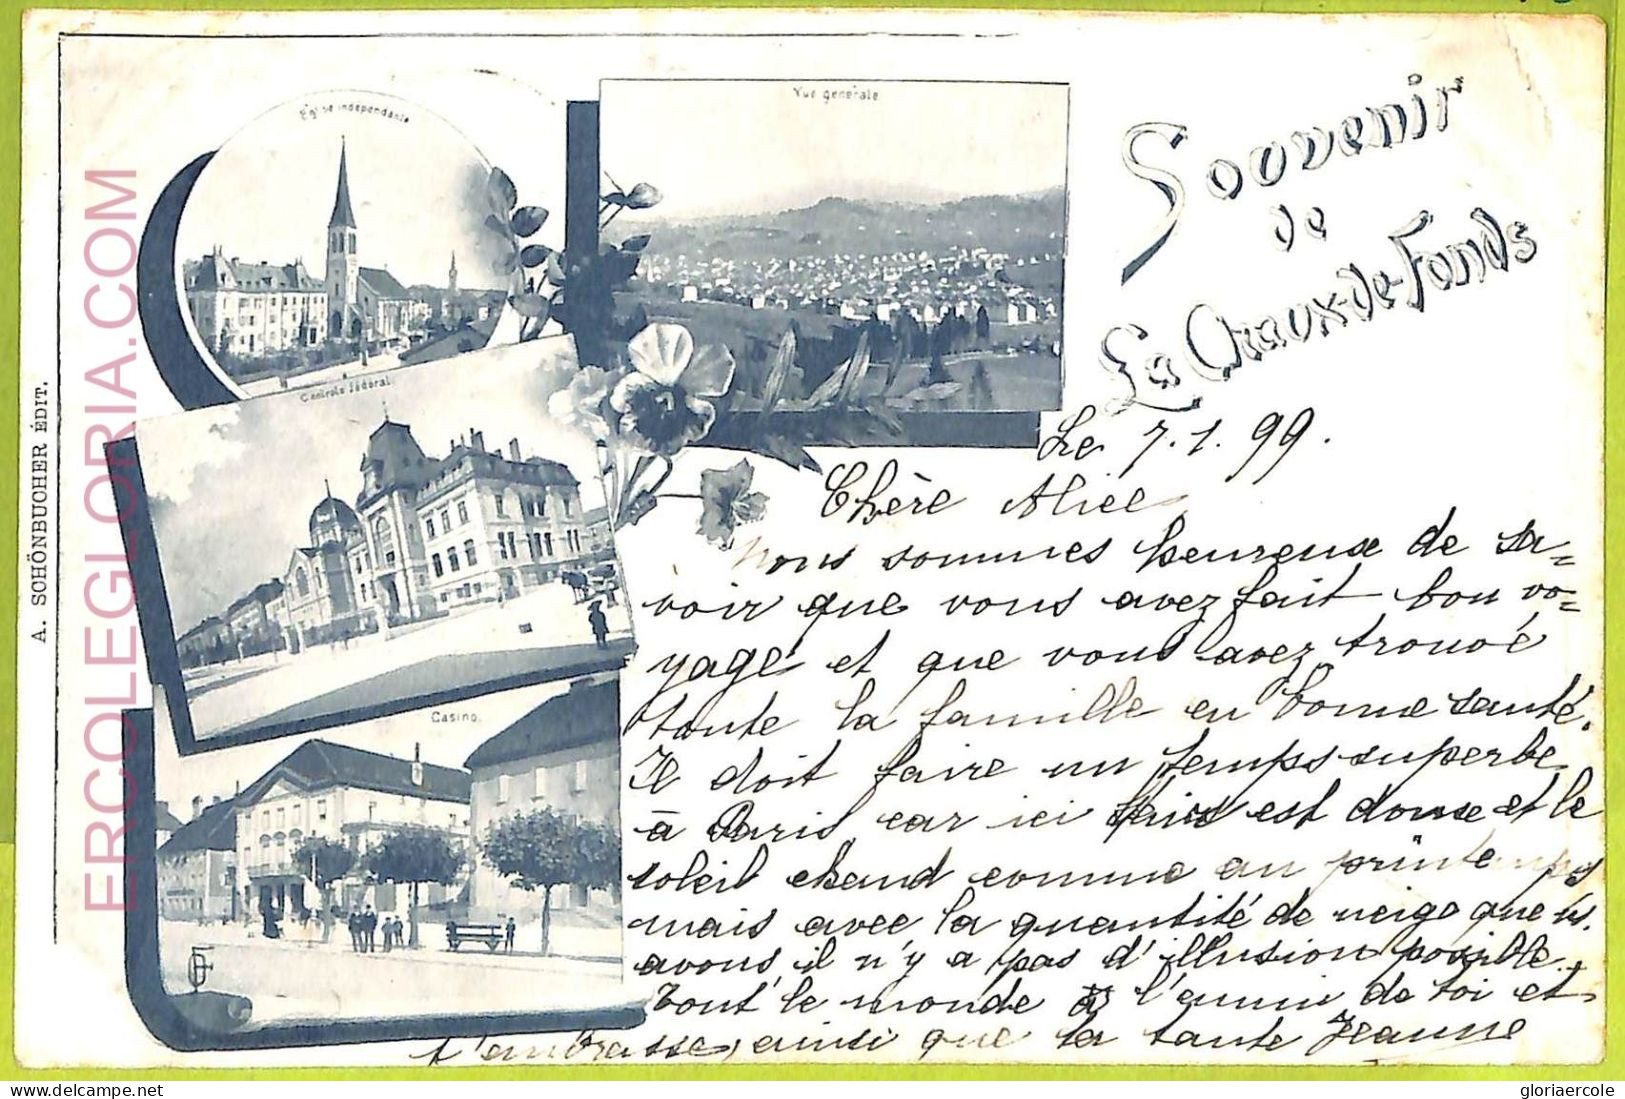 Souvenir
de
La Chaux-de-Fonds
Eglise indépendante
Vue generale
Controle fédéral.
Casino.
A. SCHÖNBUCHER ÉDIT.
Le 7.1.99.
Chère Alice
Nous sommes heureux de sa-
voir que vous avez fait bon vo-
yage et que vous avez trouvé
toute la famille en bonne santé.
Il doit faire un temps superbe
à Paris car ici l'air est doux et le
soleil chaud comme au printemps
mais avec la quantité de neige que ns.
avons il n'y a pas d'illusion possible.
Tout le monde a l'ennui de toi et
t'embrasse, ainsi que la tante Jeanne
ERCOLEGLORIA.COM
Delcampe.net
gloriaercole